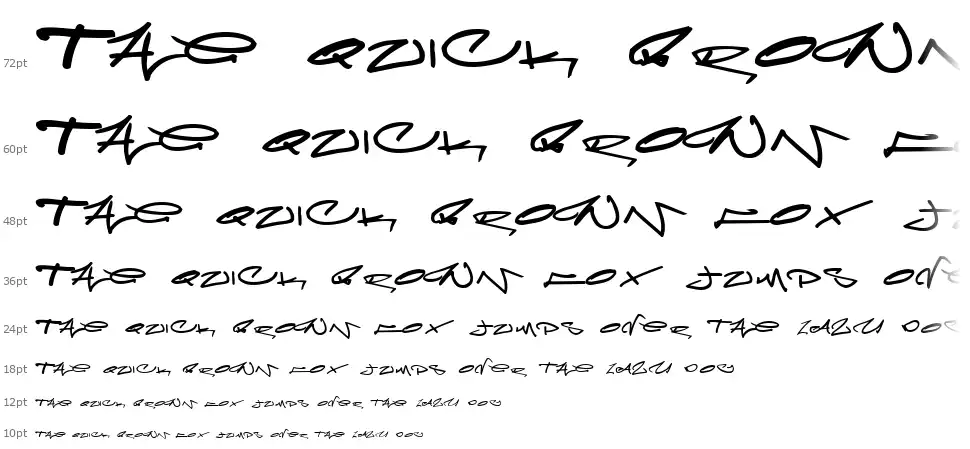 72pt THE QUICK BROWN
60pt THE QUICK BROWN F
48pt THE QUICK BROWN FOX JU
36pt THE QUICK BROWN FOX JUMPS OVE
24pt THE QUICK BROWN FOX JUMPS OVER THE LAZY DOG
18pt THE QUICK BROWN FOX JUMPS OVER THE LAZY DOG
12pt THE QUICK BROWN FOX JUMPS OVER THE LAZY DOG
10pt THE QUICK BROWN FOX JUMPS OVER THE LAZY DOG